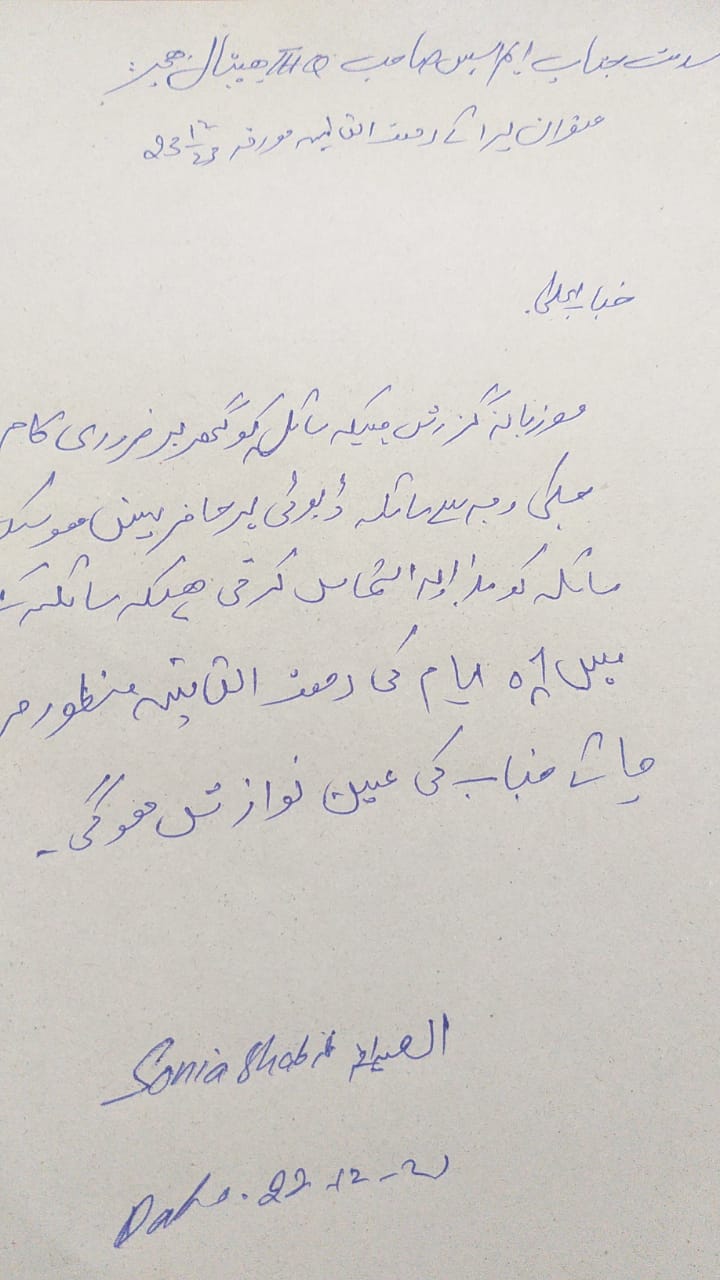 بخدمت جناب ایم ایس صاحب THQ ہسپتال
عنوان برائے رخصت اتفاقیہ مورخہ 23 12
جناب عالی
مؤدبانہ گزارش ہیکہ سائلہ کو گھر پر ضروری کام
جسکی وجہ سے سائلہ ڈیوٹی پر حاضر نہیں ہوسک
سائلہ کو التماس کرتی ہیکہ سائلہ
ایام کی رخصت اتفاقیہ منظور
جائے جناب کی عین نوازش ہوگی۔
العارضہ Sonia Shabir
Date. 22-12-